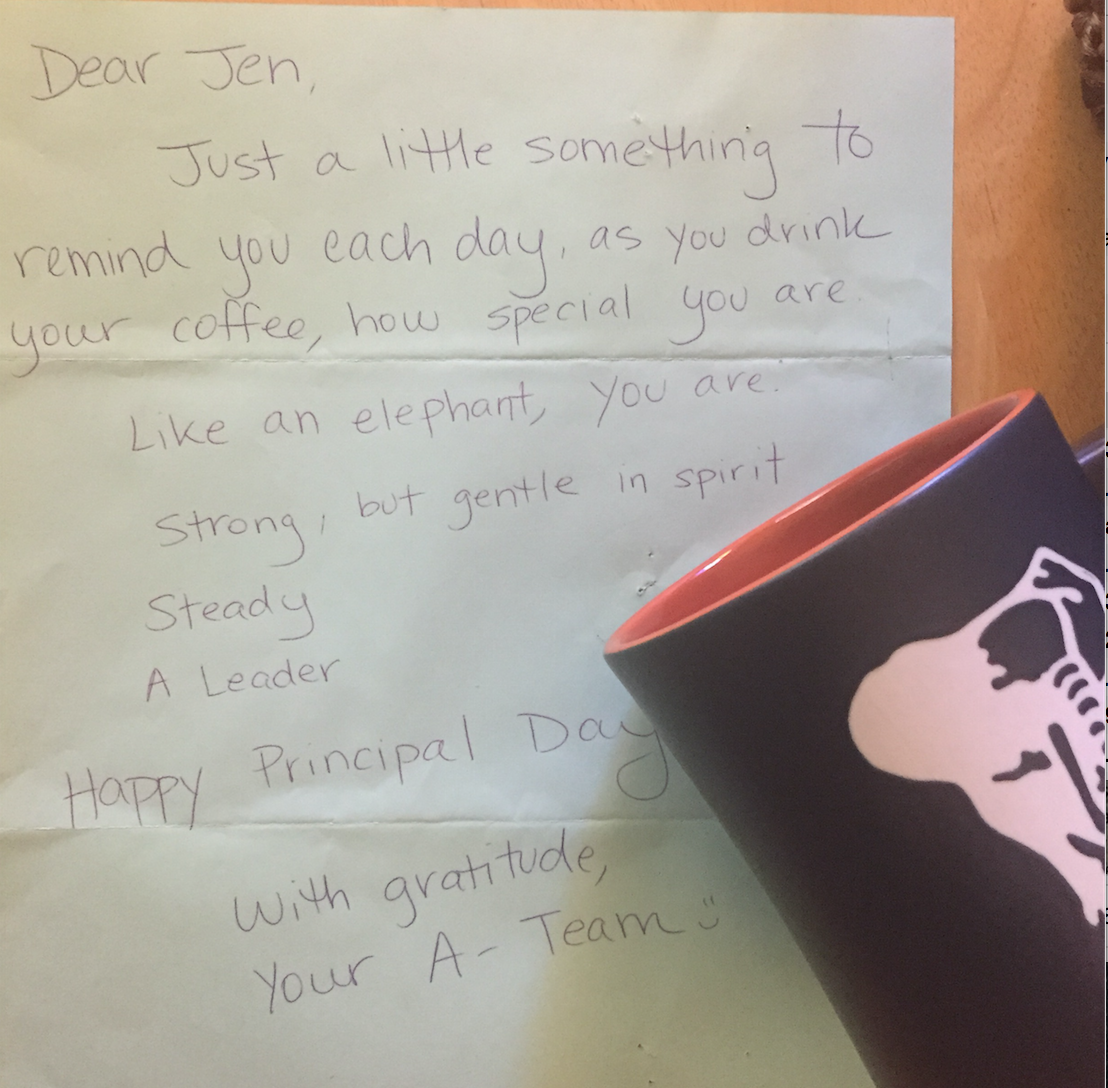 Dear Jen,
Just a little something to
remind you each day, as you drink
your coffee, how special you are.
Like an elephant, you are.
Strong, but gentle in spirit
Steady
A Leader
Happy Principal Day
With gratitude,
Your A-Team